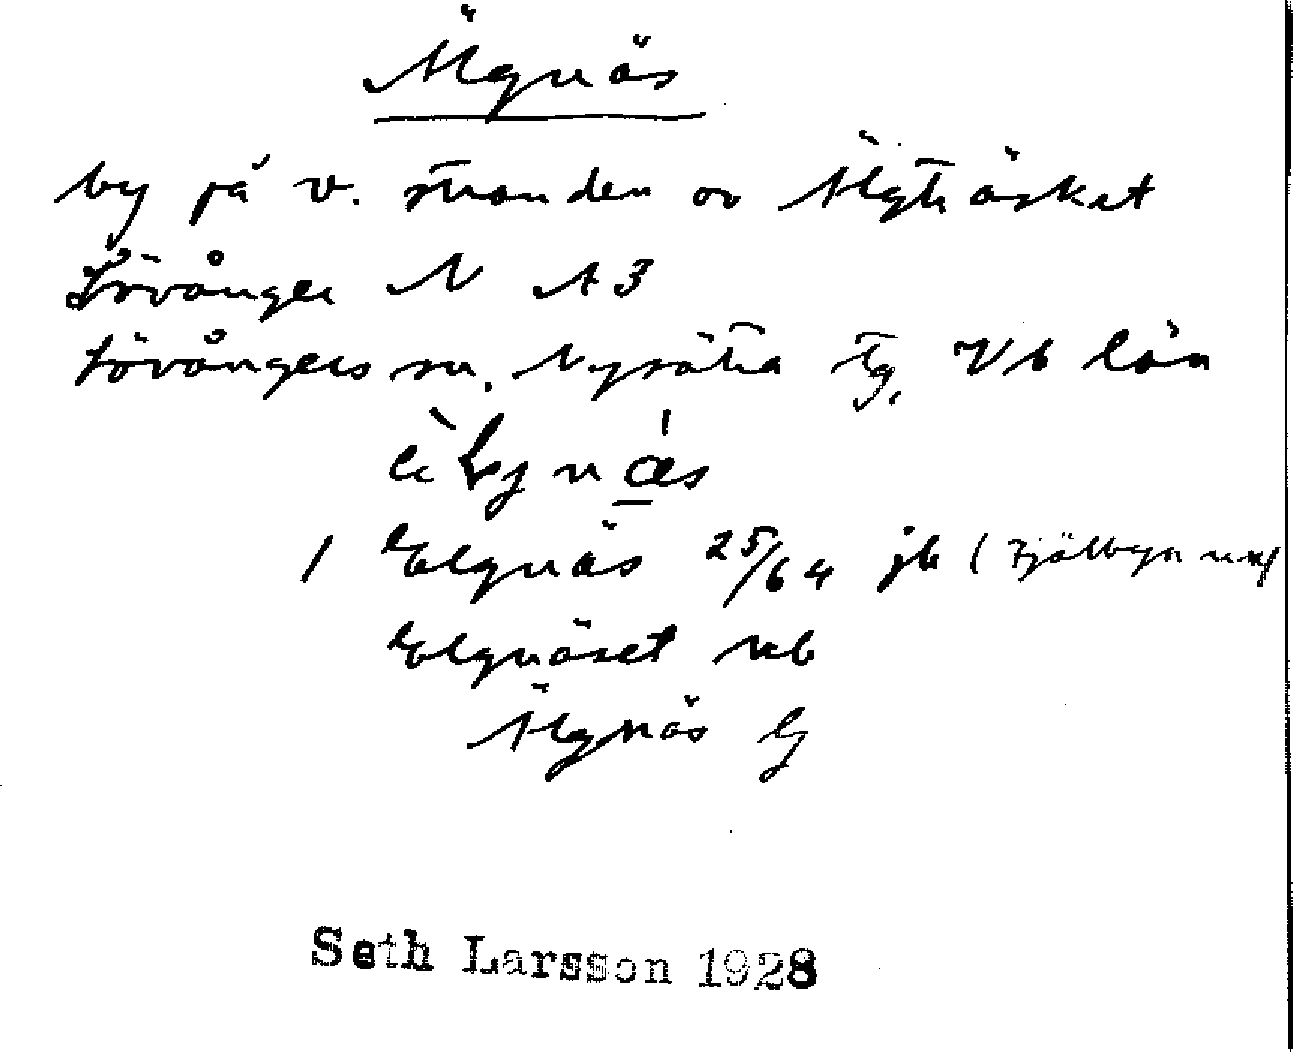 Älgnäs
by på v. stranden av Älgträsket
Lövånger N A3
Lövångers sn. Nysätra tg. Vb län
1 Elgnäs 25/64 jb (Fjälbyn
Elgnäset
Älgnäs G
Seth Larsson 1928